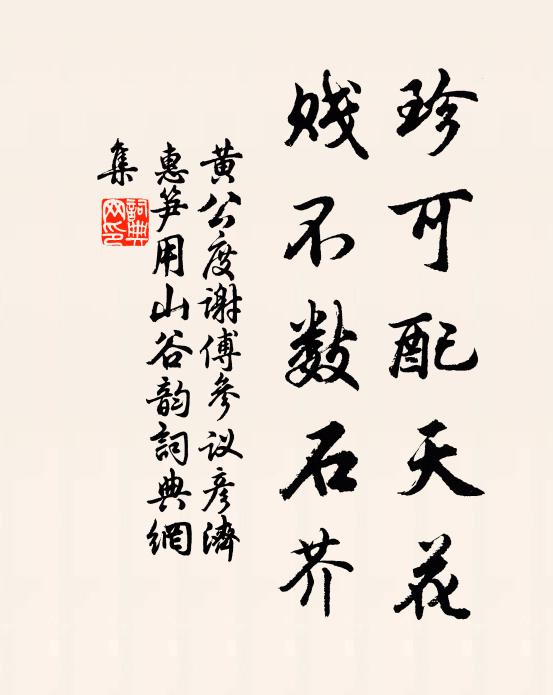 珍可配天花
贱不数石芥
黄公度谢傅参议彦濟
惠笋用山谷韵詞典網
集
詞典
网印